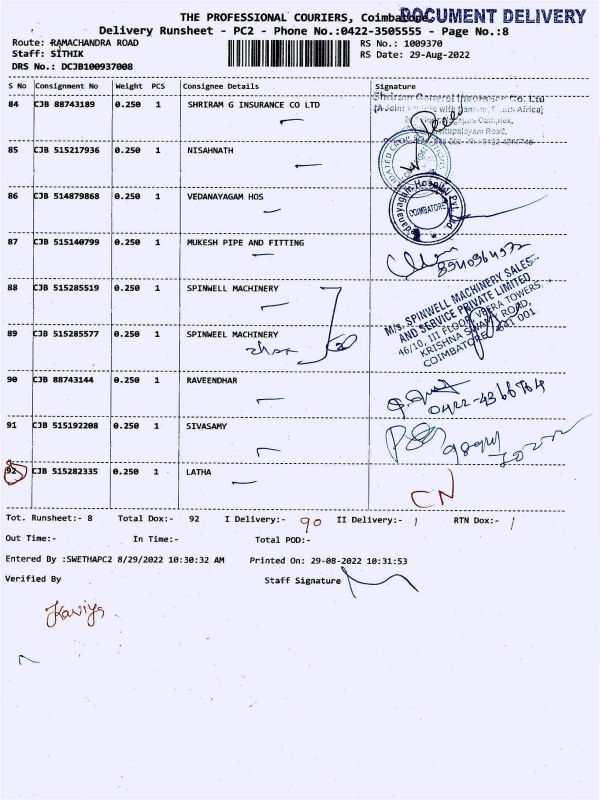 THE PROFESSIONAL COURIERS, Coimbatore
DOCUMENT DELIVERY
Delivery Runsheet - PC2 - Phone No.:0422-3505555 - Page No.:8
Route: RAMACHANDRA ROAD RS No.: 1009370
Staff: SITHIK RS Date: 29-Aug-2022
DRS No.: DCJB100937008
S No Consignment No Weight PCS Consignee Details Signature
84 CJB 88743189 0.250 1 SHRIRAM G INSURANCE CO LTD
Shriram General Insurance Co. Ltd
85 CJB 515217936 0.250 1 NISAHNATH
86 CJB 514879868 0.250 1 VEDANAYAGAM HOS
COIMBATORE
87 CJB 515140799 0.250 1 MUKESH PIPE AND FITTING
88 CJB 515285519 0.250 1 SPINWELL MACHINERY
M/s. SPINWELL MACHINERY SALES
AND SERVICE PRIVATE LIMITED
46/10, III FLOOR, VEERA TOWERS,
KRISHNA SWAMY ROAD,
COIMBATORE - 641 001
89 CJB 515285577 0.250 1 SPINWEEL MACHINERY
90 CJB 88743144 0.250 1 RAVEENDHAR
91 CJB 515192208 0.250 1 SIVASAMY
92 CJB 515282335 0.250 1 LATHA
CN
Tot. Runsheet:- 8 Total Dox:- 92 I Delivery:- 90 II Delivery:- 1 RTN Dox:- 1
Out Time:- In Time:- Total POD:-
Entered By :SWETHAPC2 8/29/2022 10:30:32 AM Printed On: 29-08-2022 10:31:53
Verified By Staff Signature
Kaviya